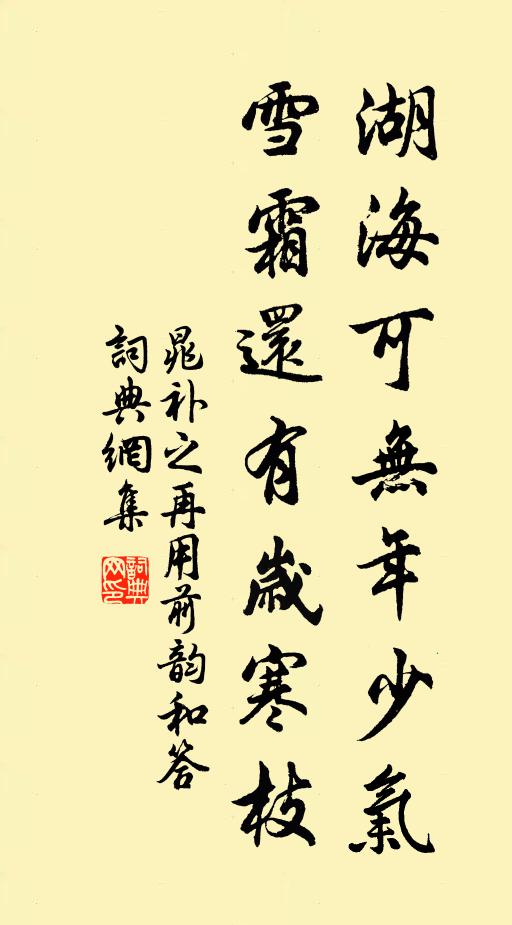 湖海可無年少氣
雪霜還有歲寒枝
晁补之再用前韵和答
詞典網集
詞典网印